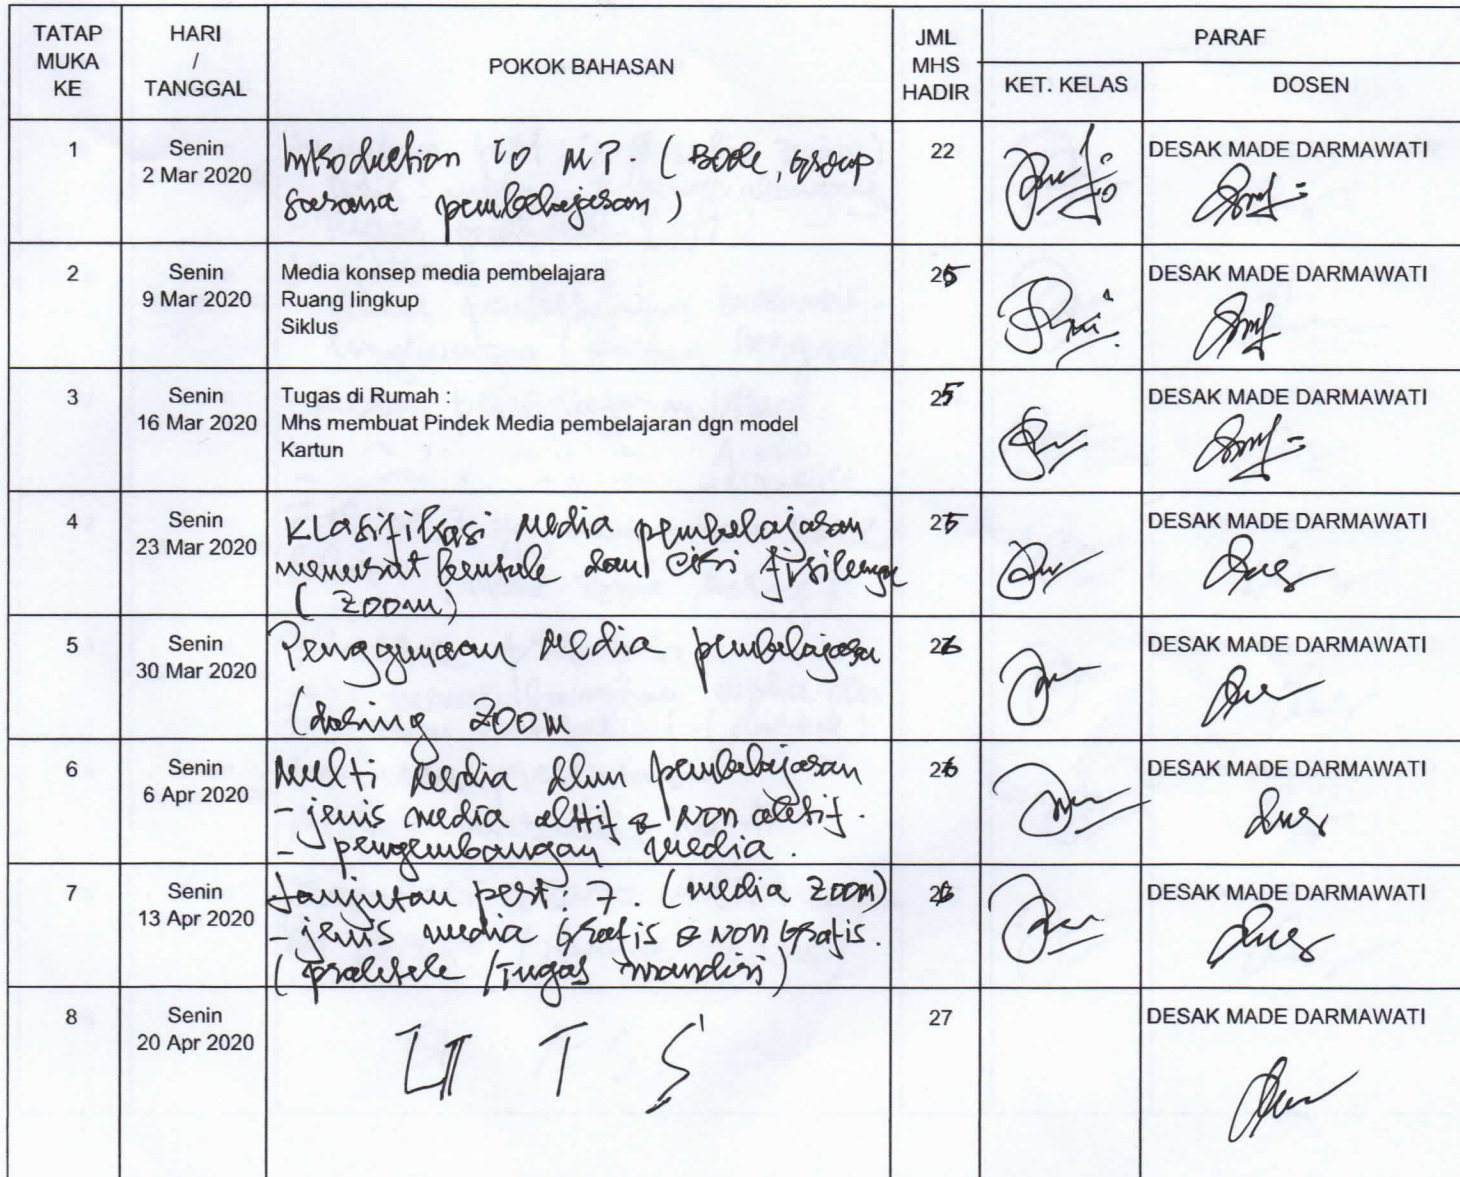 TATAP MUKA KE
HARI / TANGGAL
POKOK BAHASAN
JML MHS HADIR
PARAF
KET. KELAS
DOSEN
1
Senin
2 Mar 2020
Introduction to MP. ( Book, group
sarana pembelajaran )
22
DESAK MADE DARMAWATI
2
Senin
9 Mar 2020
Media konsep media pembelajara
Ruang lingkup
Siklus
25
DESAK MADE DARMAWATI
3
Senin
16 Mar 2020
Tugas di Rumah :
Mhs membuat Pindek Media pembelajaran dgn model
Kartun
25
DESAK MADE DARMAWATI
4
Senin
23 Mar 2020
Klasifikasi media pembelajaran
menurut bentuk dan ciri fisiknya
( zoom)
25
DESAK MADE DARMAWATI
5
Senin
30 Mar 2020
Penggunaan Media pembelajaran
(daring zoom
26
DESAK MADE DARMAWATI
6
Senin
6 Apr 2020
Multi Media dlm pembelajaran
- jenis media aktif & non aktif.
- pengembangan media.
26
DESAK MADE DARMAWATI
7
Senin
13 Apr 2020
Lanjutan pert. 7. (media zoom)
- jenis media grafis & non grafis.
( praktek / Tugas mandiri)
26
DESAK MADE DARMAWATI
8
Senin
20 Apr 2020
U T S
27
DESAK MADE DARMAWATI